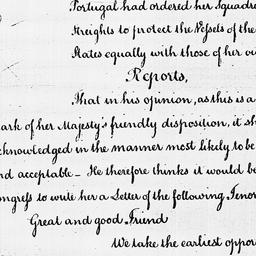 Portugal had ordered her Squadro
Streights to protect the Vessels of the
States equally with those of her ow
Reports,
That in his opinion, as this is a
ark of her Majesty's friendly disposition, it sh
cknowledged in the manner most likely to be
nd acceptable – He therefore thinks it would be
ongress to write her a Letter of the following Tenor
Great and good Friend
We take the earliest oppor